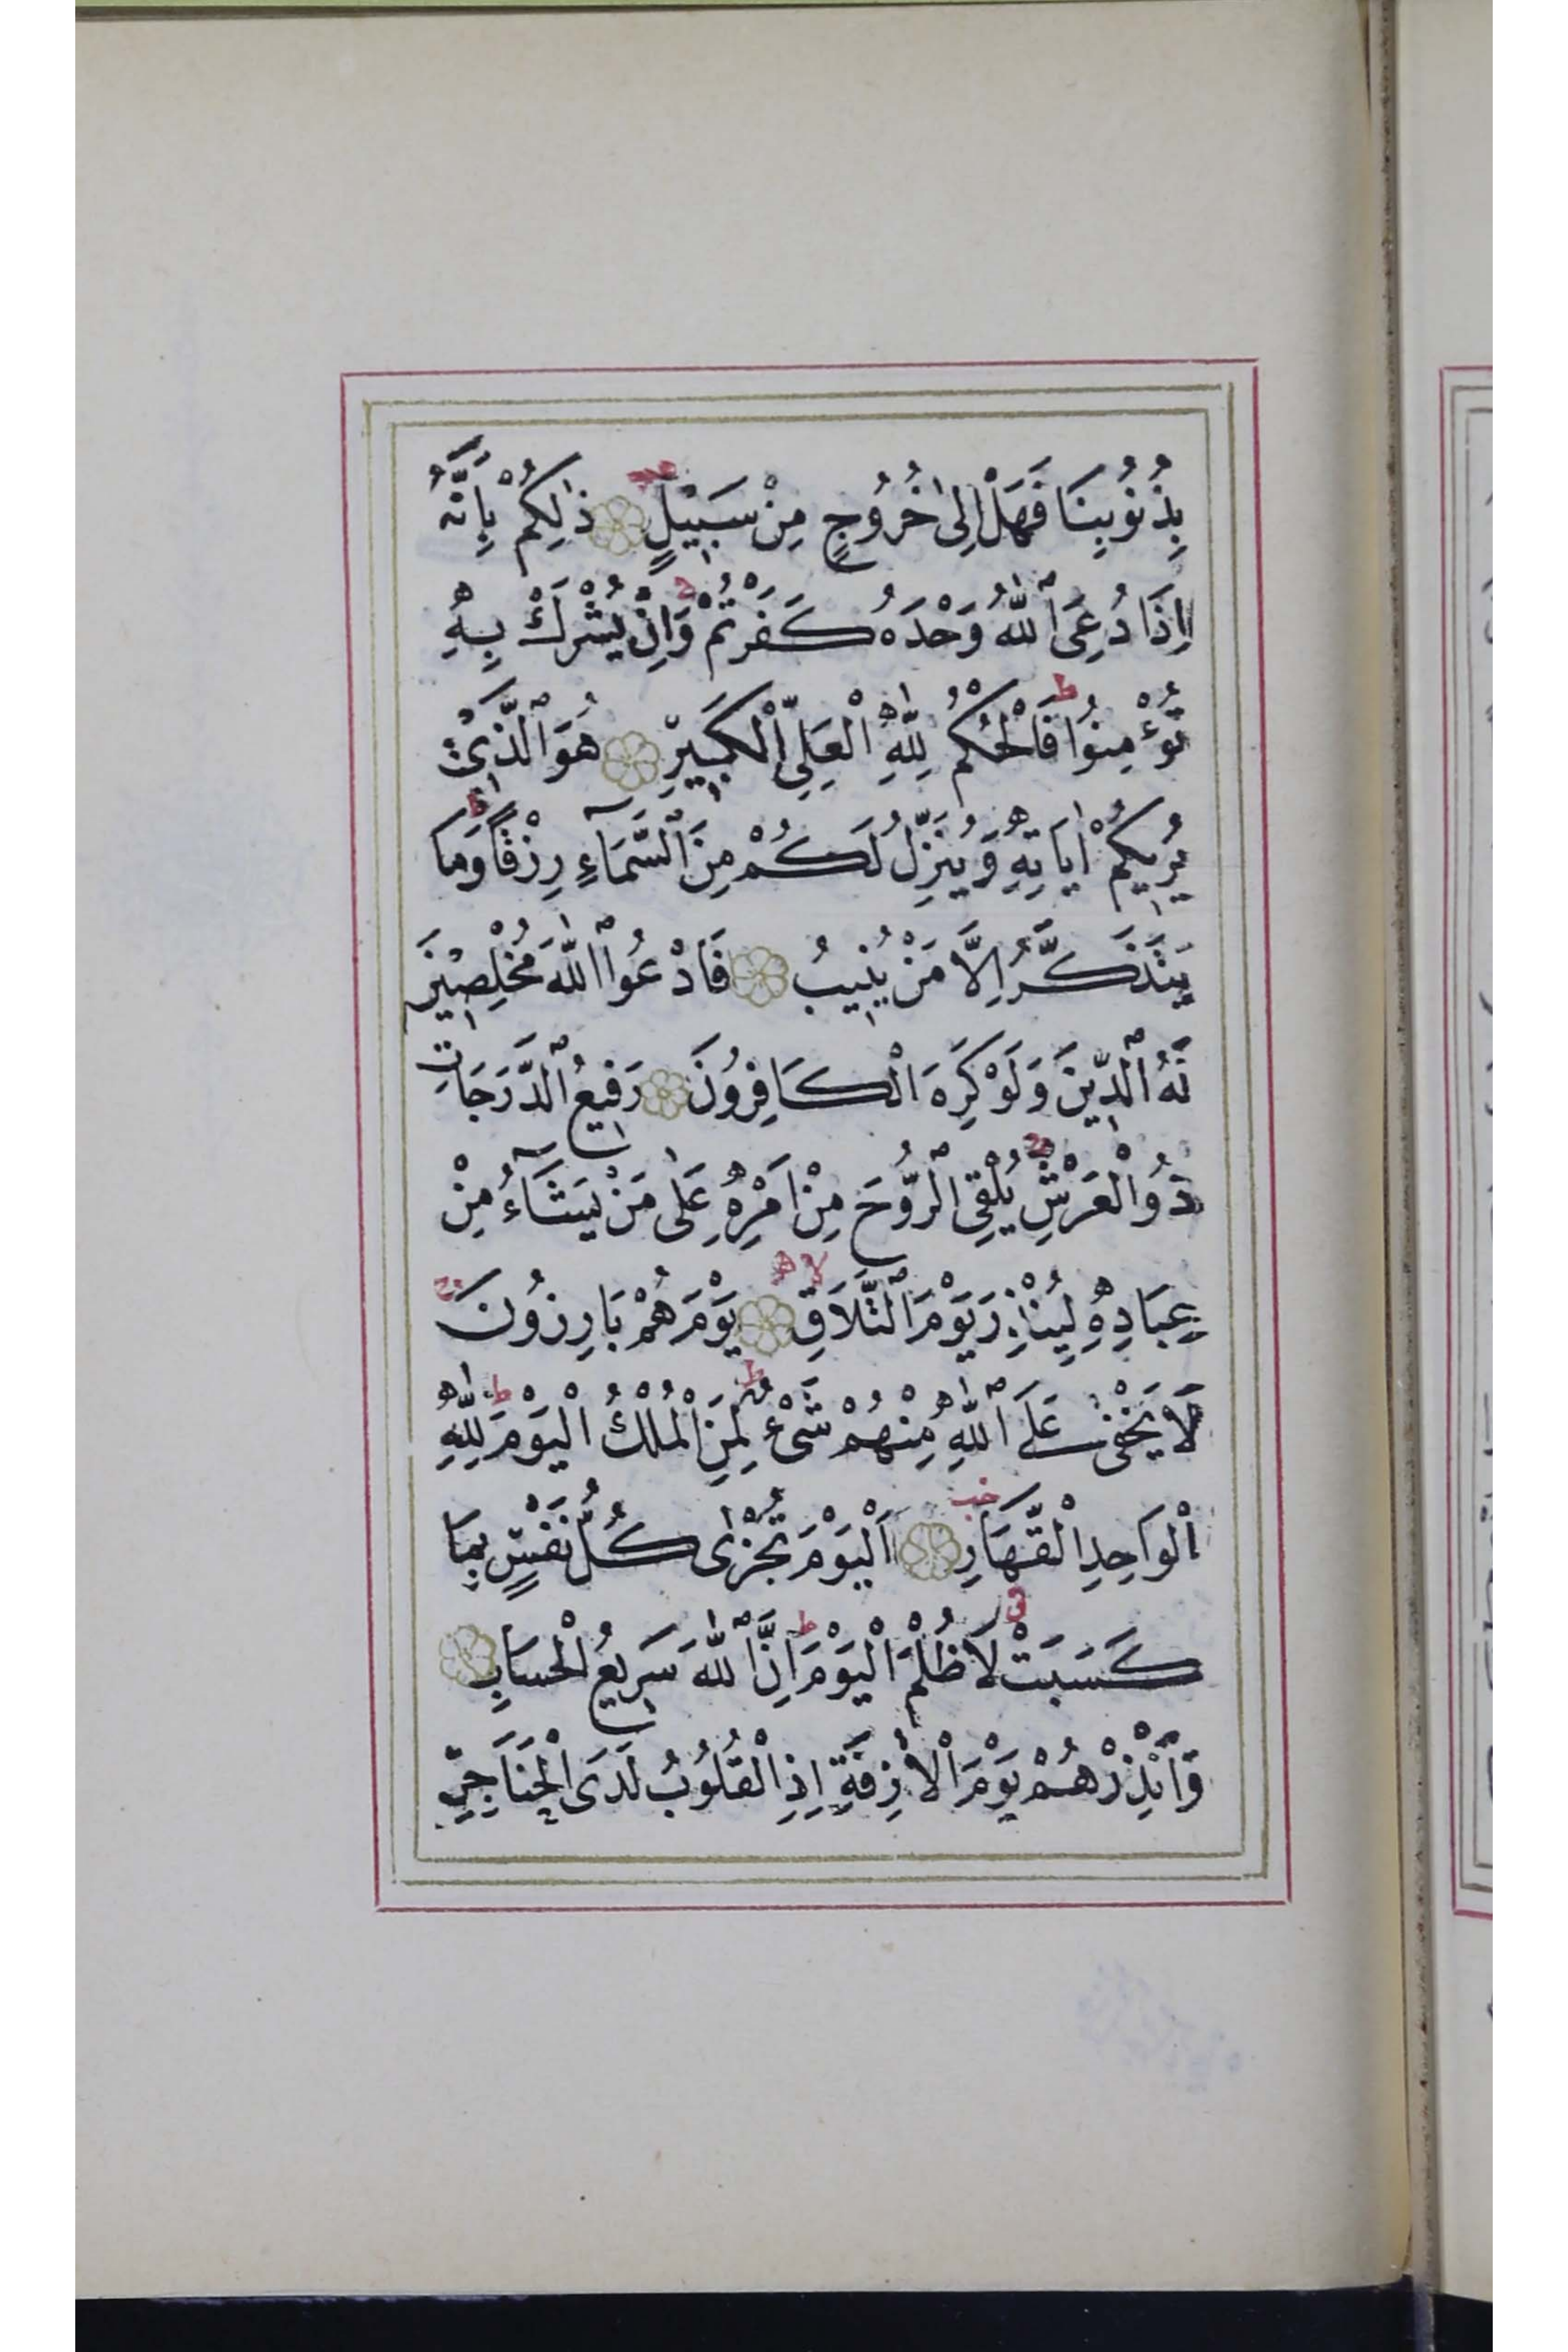 بِذُنُوبِنَا فَهَلْ اِلٰى خُرُوجٍ مِنْ سَبٖيلٍ ذٰلِكُمْ بِاَنَّهُ
اِذَا دُعِىَ ٱللّٰهُ وَحْدَهُ كَفَرْتُمْ ج وَاِنْ يُشْرَكْ بِهٖ
تُؤْمِنُوا ط فَالْحُكْمُ لِلّٰهِ الْعَلِىِّ الْكَبٖيرِ هُوَ ٱلَّذٖى
يُرٖيكُمْ اٰيَاتِهٖ وَيُنَزِّلُ لَكُمْ مِنَ ٱلسَّمَآءِ رِزْقًا ط وَمَا
يَتَذَكَّرُ اِلَّا مَنْ يُنٖيبُ فَادْعُوا ٱللّٰهَ مُخْلِصٖينَ
لَهُ ٱلدّٖينَ وَلَوْ كَرِهَ الْكَافِرُونَ رَفٖيعُ ٱلدَّرَجَاتِ
ذُو الْعَرْشِ ج يُلْقِى ٱلرُّوحَ مِنْ اَمْرِهٖ عَلٰى مَنْ يَشَآءُ مِنْ
عِبَادِهٖ لِيُنْذِرَ يَوْمَ ٱلتَّلَاقِ لا يَوْمَ هُمْ بَارِزُونَ ج
لَا يَخْفٰى عَلَى ٱللّٰهِ مِنْهُمْ شَىْءٌ ط لِمَنِ الْمُلْكُ الْيَوْمَ ط لِلّٰهِ
الْوَاحِدِ الْقَهَّارِ اَلْيَوْمَ تُجْزٰى كُلُّ نَفْسٍ بِمَا
كَسَبَتْ لَا ظُلْمَ الْيَوْمَ ط اِنَّ ٱللّٰهَ سَرٖيعُ الْحِسَابِ
وَاَنْذِرْهُمْ يَوْمَ الْاٰزِفَةِ اِذِ الْقُلُوبُ لَدَى الْحَنَاجِرِ